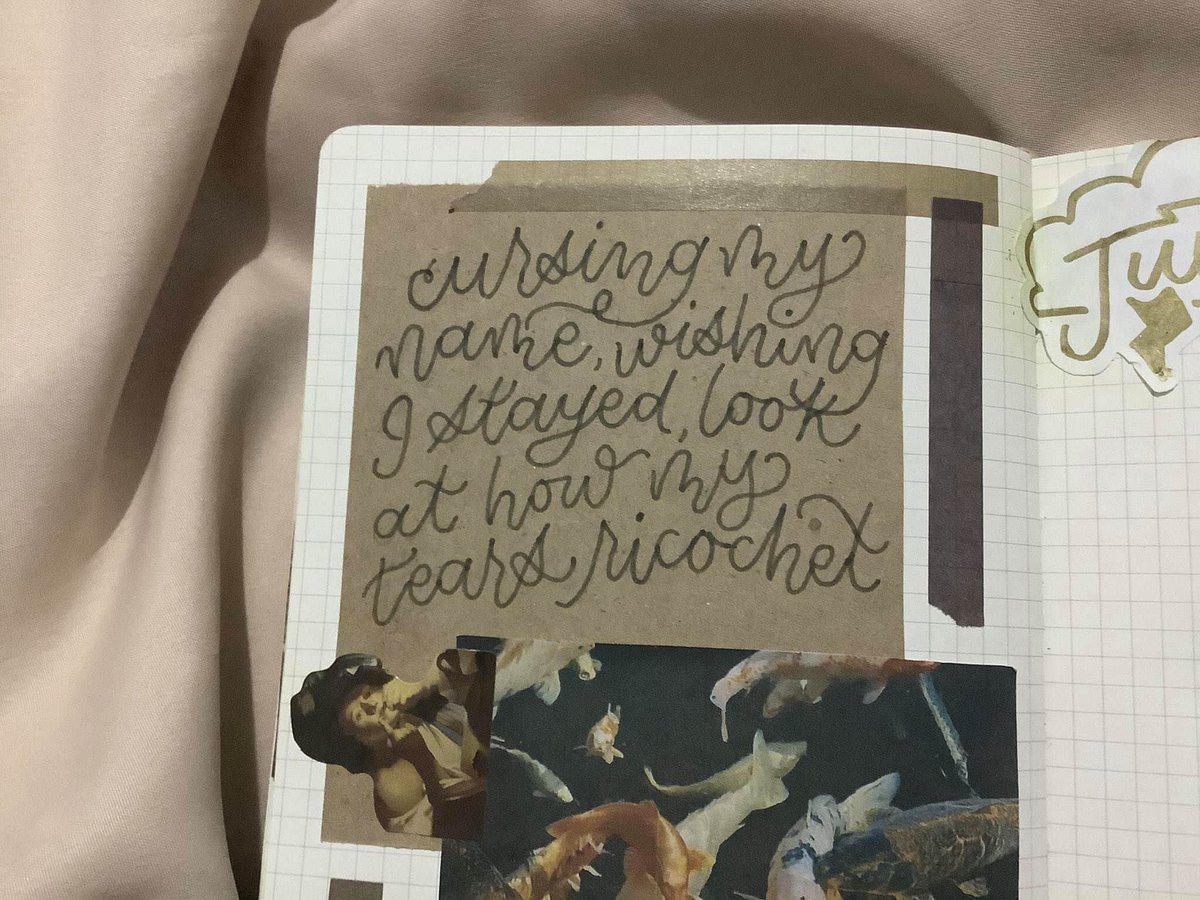 cursing my
name, wishing
I stayed, look
at how my
tears ricochet